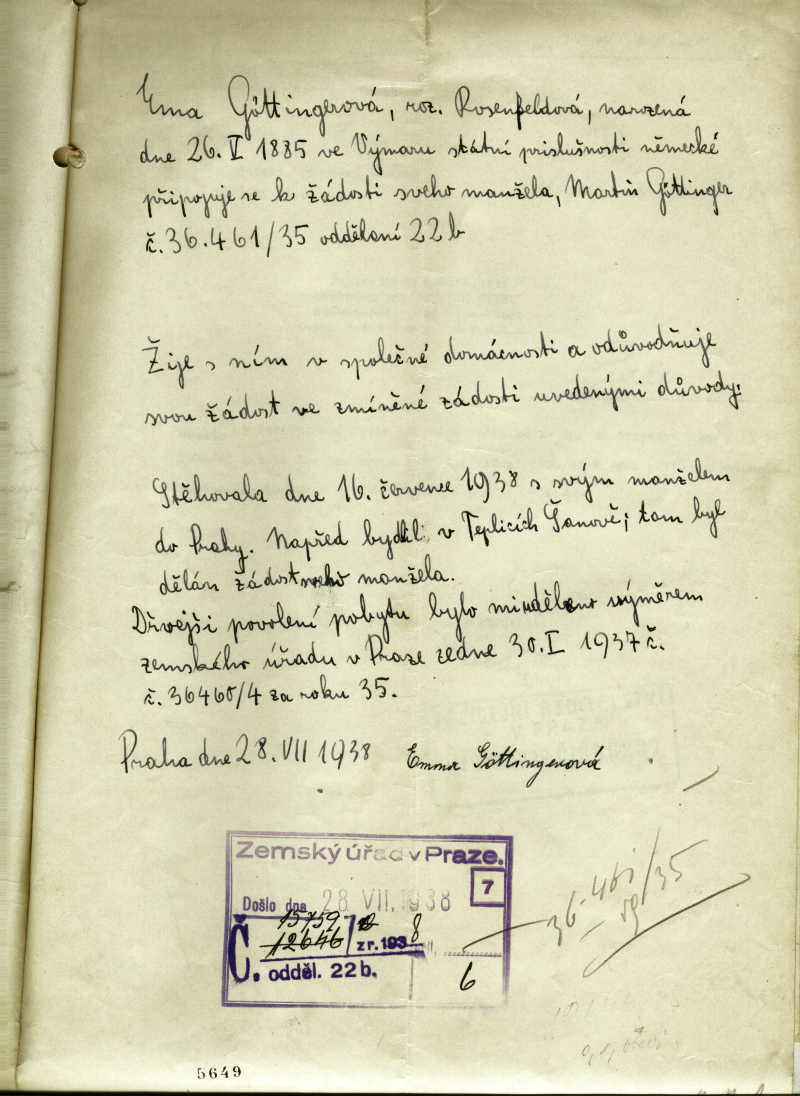 Ema Göttingerová, roz. Rosenfeldová, narozená
dne 26. V 1885 ve Výmaru státní prislušnosti německé
připojuje se k žádosti sveho manžela, Martin Göttinger
č. 36.461/35 oddělení 22 b
Žije s ním v společné domácnosti a odůvodňuje
svou žádost ve zmíněné zádosti uvedenými důvody.
Stěhovala dne 16. července 1938 s svým manželem
do Prahy. Napřed bydlil v Teplicích Šanově; tam byl
dělán žádost sveho manžela.
Dřvejši povolení pobytu bylo mi uděleno výměrem
zemského úřadu v Praze ze dne 30. I 1937 č.
č. 36460/4 za roku 35.
Praha dne 28. VII 1938 Emma Göttingerová
Zemský úřad v Praze.
7
Došlo dne 28. VII. 1938
15759
Č. 12646 / z r. 1938
odděl. 22 b.
6
36.461/35
5649